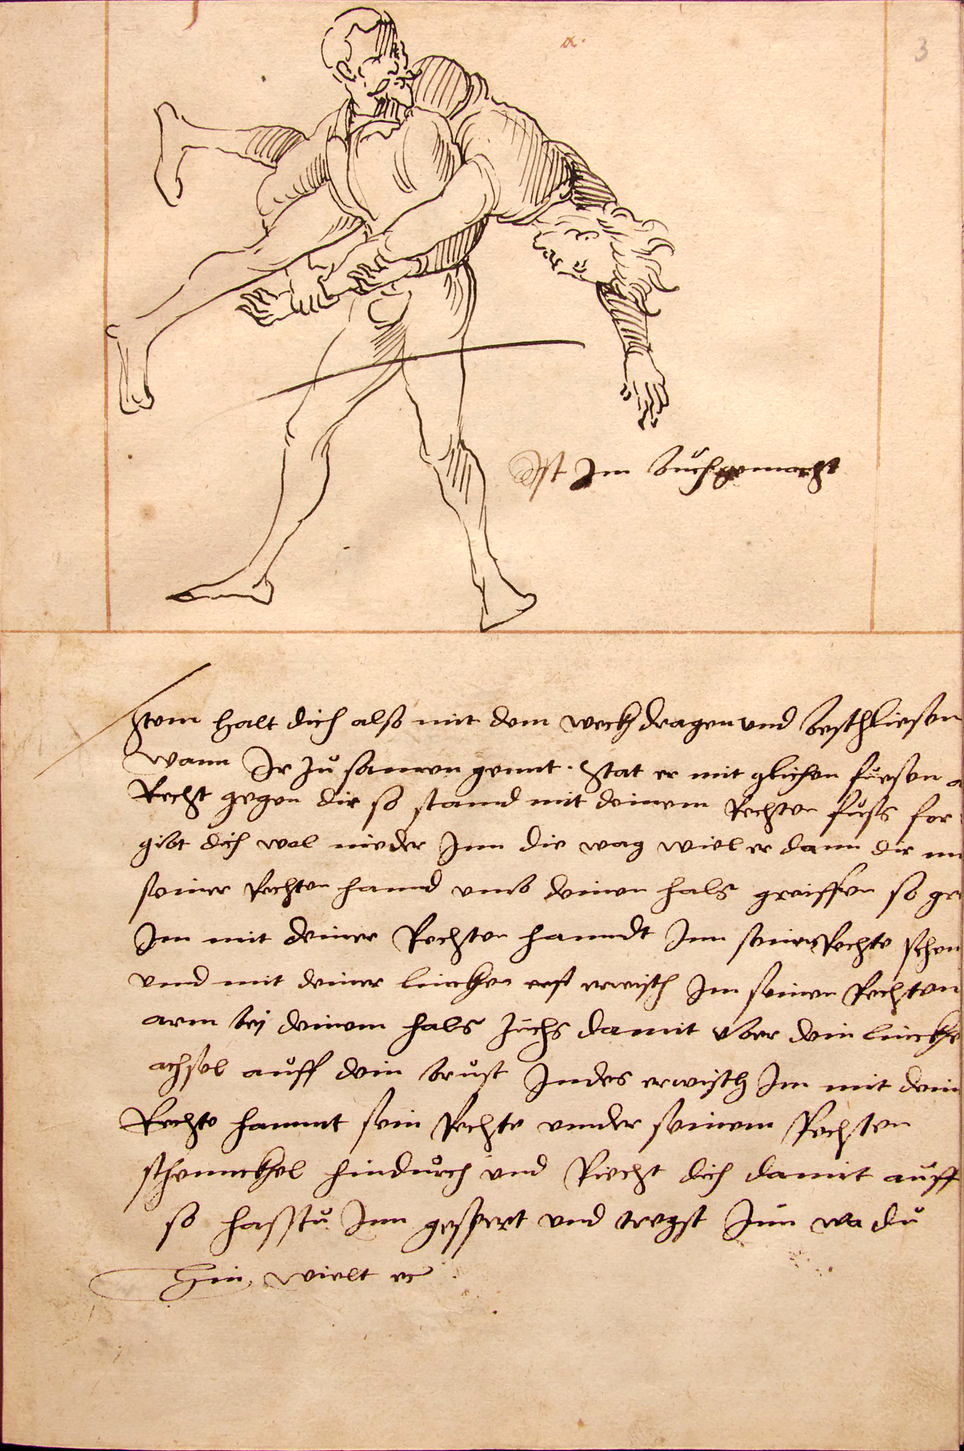 a.
3
Ist Im buch gemacht
Item halt dich also mit dem weckh dragen vnd beschliesen
wann Ir zu samen gennt. Stat er mit glichen füesen
Recht gegen dir so stannd mit deinem Rechten fuss for
gibt dich wol nieder Inn die wag wiel er dann dir
seiner Rechten hannd vmb deinen hals greiffen so
Im mit deiner Rechten hanndt Inn seine Rechte
vnnd mit deiner linckhen erst erwisch Im seinen Rechten
arm bej deinem hals zuchs damit vber dein linckhe
achsel auff dein brust Indes erwisch Im mit dein
Rechte hannt sein Rechte vnnder seinem Rechten
schennckhel hindurch vnd Riecht dich damit auff
so hasstu Inn gespert vnd tregst Inn wa du
Hin wielt ec